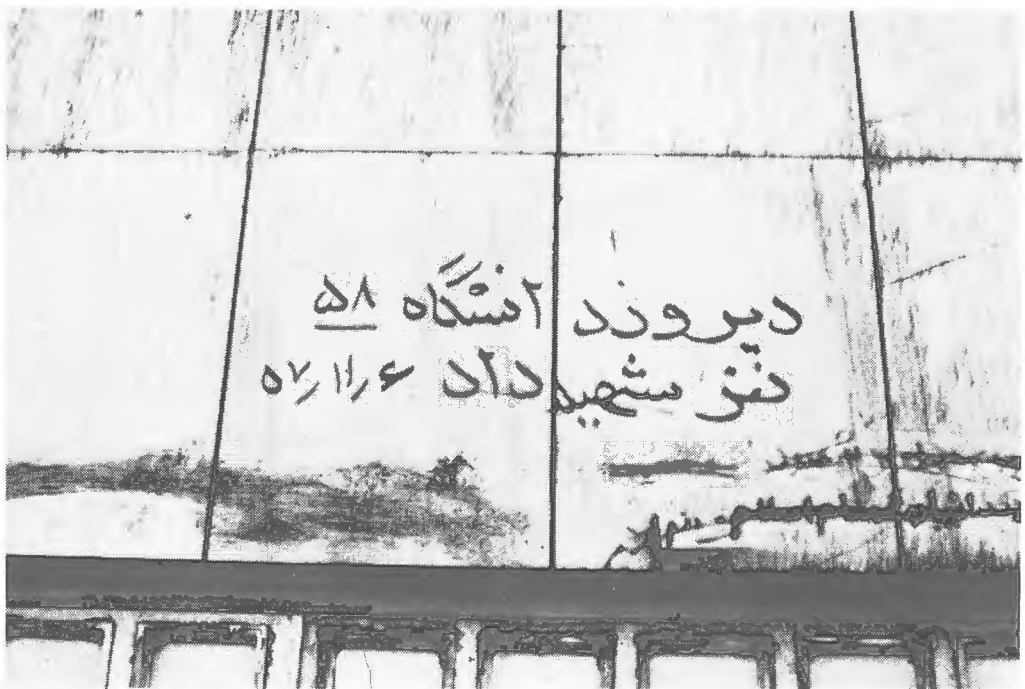 دیروز دانشگاه ۵۸
نفر شهید داد ۵۷/۱۱/۶